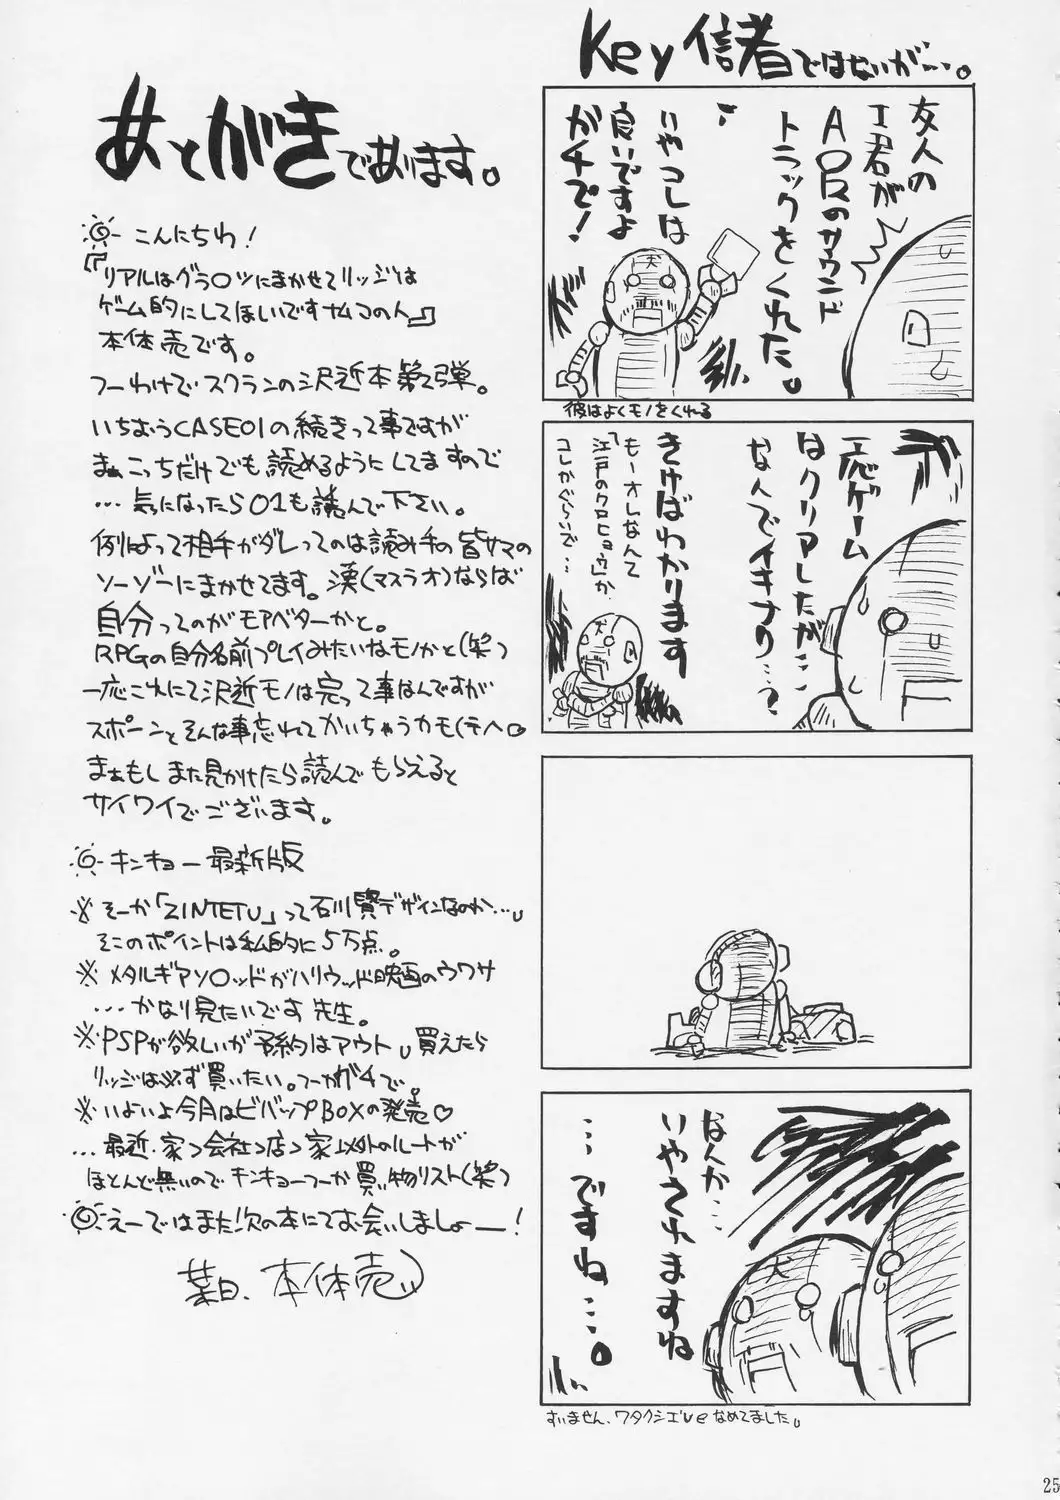 あとがきであります。
こんにちわ!
『リアルはグラ○ツにまかせてリッジは
ゲーム的にしてほしいですナムコの人』
本体売です。
つーわけでスクランの沢近本第2弾。
いちおうCASE01の続きって事ですが
まぁこっちだけでも読めるようにしてますので
…気になったら01も読んで下さい。
例によって相手がダレってのは読み手の皆サマの
ソーゾーにまかせてます。漢(マスラオ)ならば
自分ってのがモアベターかと。
RPGの自分名前プレイみたいなモノかと(笑)
一応これにて沢近モノは完って事なんですが
スポーンとそんな事忘れてかいちゃうカモ(テヘ。
まぁもしまた見かけたら読んでもらえると
サイワイでございます。
キンキョー最新版
※そーか「ZINTETU」って石川賢デザインなのか…。
そこのポイントは私的に5万点。
※メタルギアソ○ッドがハリウッド映画のウワサ
…かなり見たいです先生。
※PSPが欲しいが予約はアウト。買えたら
リッジは必ず買いたい。つーかガチで。
※いよいよ今月はビバップBOXの発売♡
…最近、家→会社→店→家以外のルートが
ほとんど無いのでキンキョーつーか買い物リスト(笑)
えーではまた!次の本にてお会いしましょー!
葉日、本体売
Key信者ではないが…。
友人の
I君が
AIRのサウンド
トラックをくれた。
いやコレは
良いですよ
ガチで!
犬
彼はよくモノをくれる
一応ゲーム
はクリアしたが…
なんでイキナリ…?
きけばわかります
もーオレなんて
「江戸のクロヒョウ」か
コレかぐらいで…
犬
なんか…
いやされますね
…ですね…。
犬
すいません、ワタクシエVeなめてました。
25